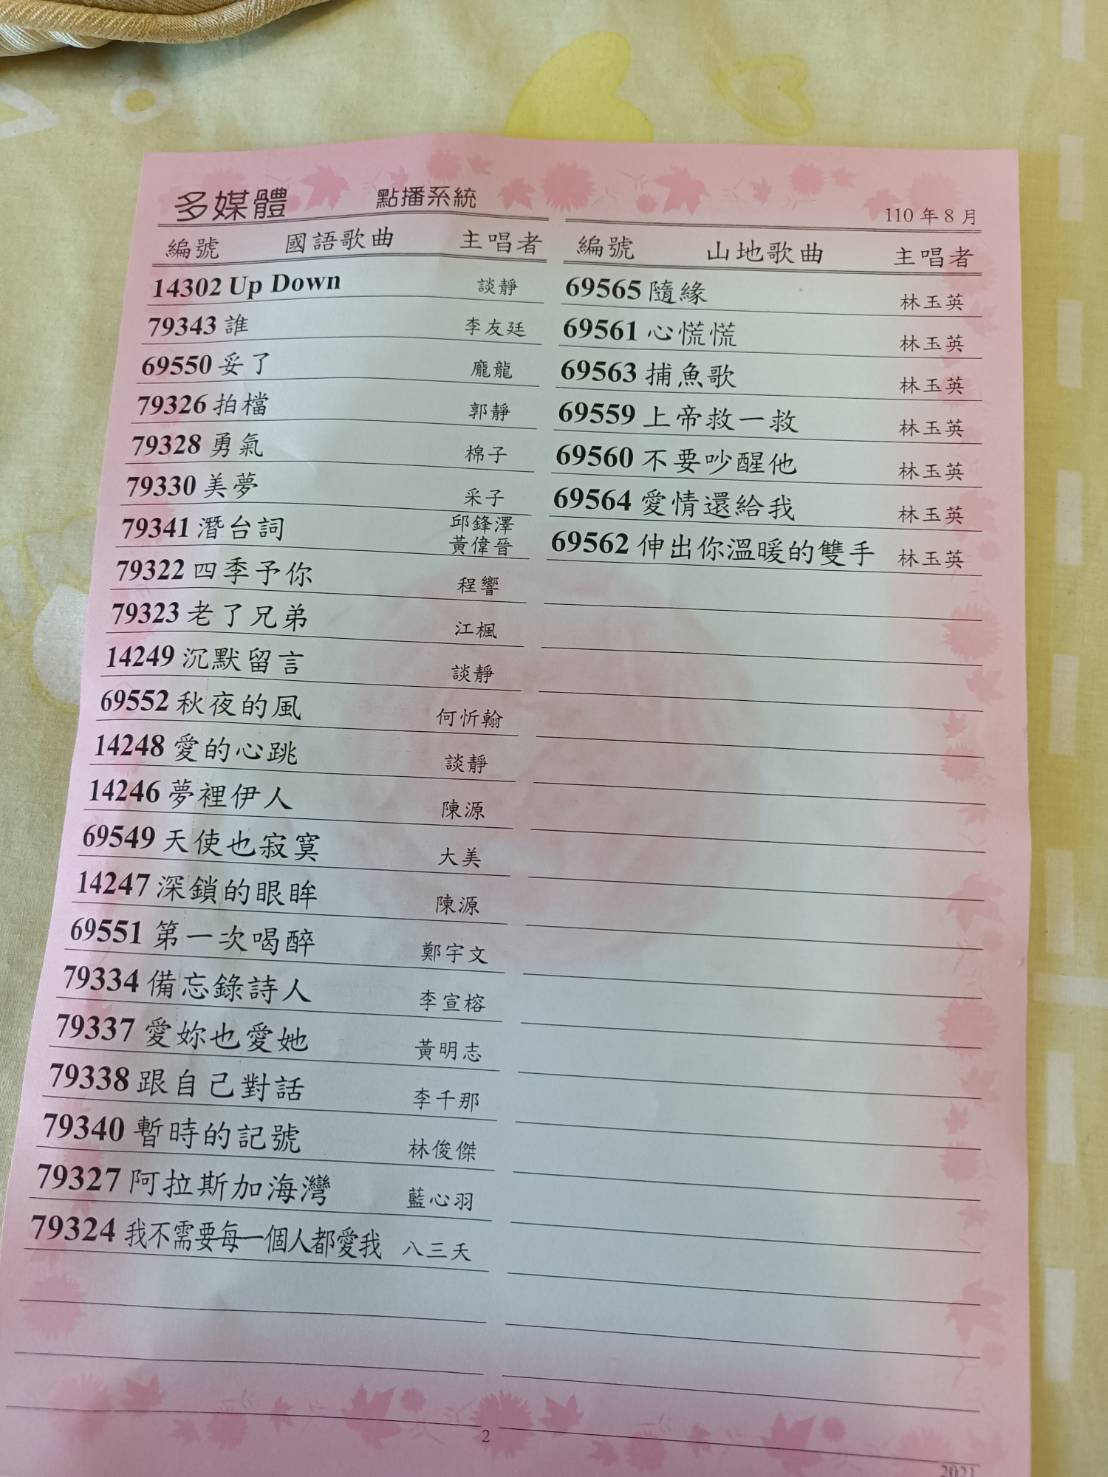 多媒體 點播系統
110 年 8 月
編號 國語歌曲 主唱者
14302 Up Down 談靜
79343 誰 李友廷
69550 妥了 龐龍
79326 拍檔 郭靜
79328 勇氣 棉子
79330 美夢 采子
79341 潛台詞 邱鋒澤
黃偉晉
79322 四季予你 程響
79323 老了兄弟 江楓
14249 沉默留言 談靜
69552 秋夜的風 何忻翰
14248 愛的心跳 談靜
14246 夢裡伊人 陳源
69549 天使也寂寞 大美
14247 深鎖的眼眸 陳源
69551 第一次喝醉 鄭宇文
79334 備忘錄詩人 李宣榕
79337 愛妳也愛她 黃明志
79338 跟自己對話 李千那
79340 暫時的記號 林俊傑
79327 阿拉斯加海灣 藍心羽
79324 我不需要每一個人都愛我 八三夭
編號 山地歌曲 主唱者
69565 隨緣 林玉英
69561 心慌慌 林玉英
69563 捕魚歌 林玉英
69559 上帝救一救 林玉英
69560 不要吵醒他 林玉英
69564 愛情還給我 林玉英
69562 伸出你溫暖的雙手 林玉英
2
2021